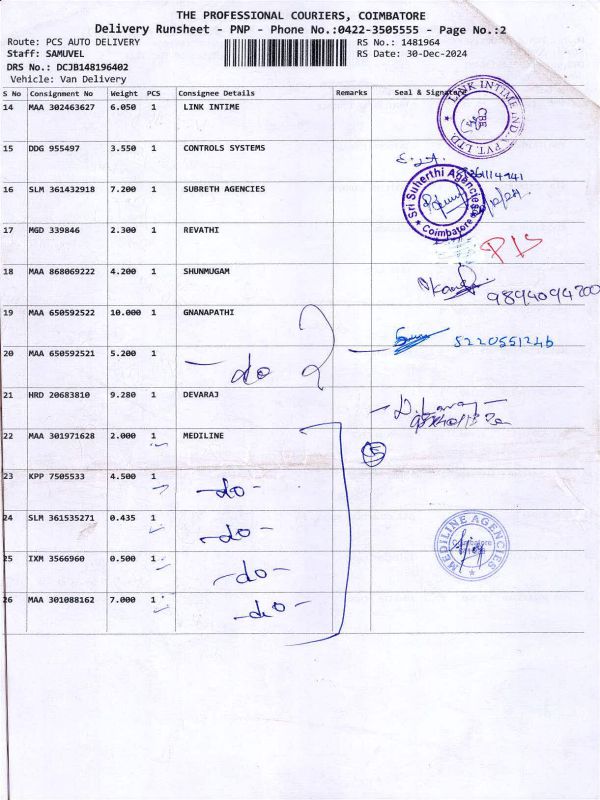 THE PROFESSIONAL COURIERS, COIMBATORE
Delivery Runsheet - PNP - Phone No.:0422-3505555 - Page No.:2
Route: PCS AUTO DELIVERY RS No.: 1481964
Staff: SAMUVEL RS Date: 30-Dec-2024
DRS No.: DCJB148196402
Vehicle: Van Delivery
S No Consignment No Weight PCS Consignee Details Remarks Seal & Signature
14 MAA 302463627 6.050 1 LINK INTIME
LINK INTIME IND... PVT. LTD.
CBE
15 DDG 955497 3.550 1 CONTROLS SYSTEMS
16 SLM 361432918 7.200 1 SUBRETH AGENCIES
Sri Suherthi Agencies
Coimbatore
17 MGD 339846 2.300 1 REVATHI
18 MAA 868069222 4.200 1 SHUNMUGAM
9894094200
19 MAA 650592522 10.000 1 GNANAPATHI
5220551246
20 MAA 650592521 5.200 1 -do
21 HRD 20683810 9.280 1 DEVARAJ
22 MAA 301971628 2.000 1 MEDILINE
23 KPP 7505533 4.500 1 -do-
24 SLM 361535271 0.435 1 -do-
MEDILINE AGENCIES
Coimbatore
25 IXM 3566960 0.500 1 -do-
26 MAA 301088162 7.000 1 -do-